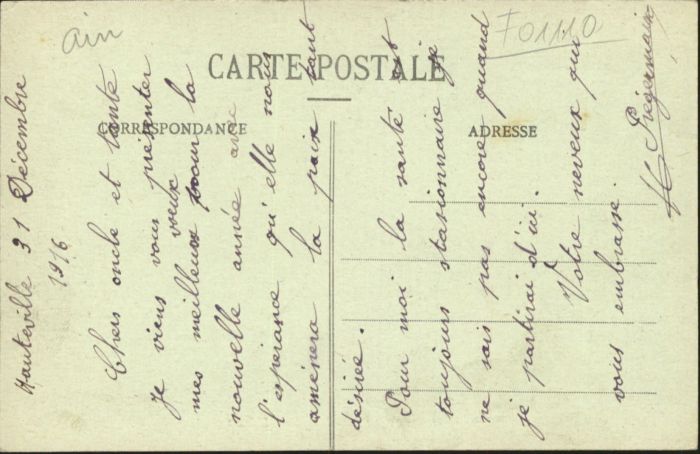 Ain
F01110
CARTE POSTALE
CORRESPONDANCE
ADRESSE
Hauteville 31 Décembre
1916
Chers oncle et tante
Je viens vous présenter
mes meilleux voeux pour la
nouvelle année avec
l'espérance qu'elle nous
amènera la paix tant
désirée.
Pour moi la santé est
toujours stasionnaire je
ne sais pas encore quand
je partirai d'ici.
Votre neveux qui
vous embrasse.